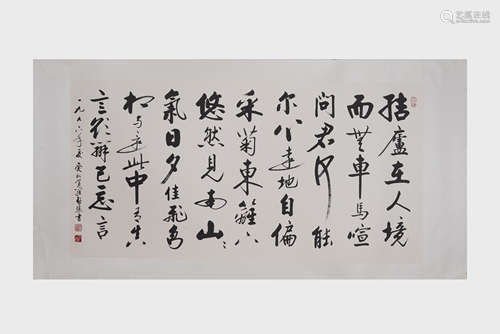 結廬在人境
而無車馬喧
問君何能
尔心遠地自偏
采菊東籬下
悠然見南山〻
氣日夕佳飛鳥
相与還此中有真
意欲辯已忘言
一九八六年夏
書
艺狐在线